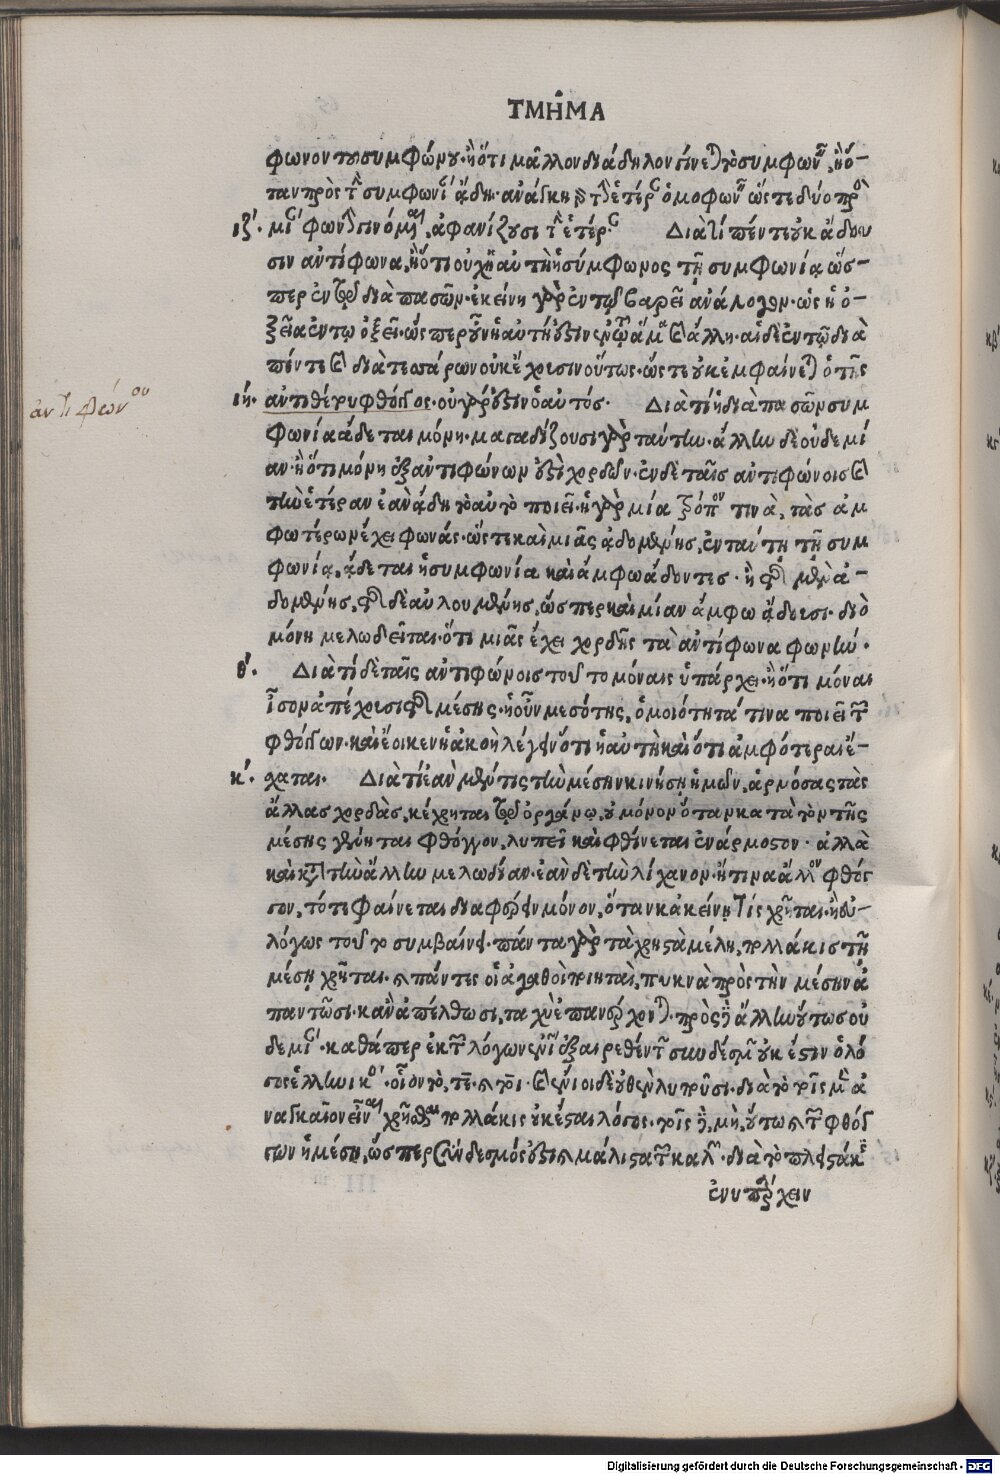 ΤΜΗ͂ΜΑ
φωνον τοῦ συμφώνου. ἢ ὅτι μᾶλλον διάδηλον γίνεται τὸ σύμφωνον, ἢ ὅ-
ταν πρὸς τὴν συμφωνίαν ᾄδῃ. ἀνάγκη τὴν ἑτέραν ὁμοφωνεῖν ὥστε δύο πρὸς
ιζ΄. μίαν φωνὴν γινόμεναι, ἀφανίζουσι τὴν ἑτέραν. Διὰ τί πέντε οὐκ ᾄδου
σιν ἀντίφωνα, ἢ ὅτι οὐχ ἡ αὐτὴ ἡ σύμφωνος τῇ συμφωνίᾳ ὥσ-
περ ἐν τῷ διὰ πασῶν. ἐκείνη γὰρ ἐν τῷ βαρεῖ ἀνάλογον. ὡς ἡ ὀ-
ξεῖα ἐν τῷ ὀξεῖ. ὥσπερ οὖν ἡ αὐτή ἐστιν ἅμα καὶ ἄλλη. αἱ δὲ ἐν τῷ διὰ
πέντε καὶ διὰ τεσσάρων οὐκ ἔχουσιν οὕτως. ὥστε οὐκ ἐμφαίνεται ὁ τῆς
ιη΄. ἀντιθέτου φθόγγος. οὐ γάρ ἐστιν ὁ αὐτός. Διὰ τί ἡ διὰ πασῶν συμ
φωνία ᾄδεται μόνη. μαγαδίζουσι γὰρ ταύτην. ἄλλην δὲ οὐδεμί
αν. ἢ ὅτι μόνη ἐξ ἀντιφώνων ἐστὶ χορδῶν. ἐν δὲ ταῖς ἀντιφώνοις καὶ
τὴν ἑτέραν ἐὰν ᾄδῃ τὸ αὐτὸ ποιεῖ. ἡ γὰρ μία τρόπον τινὰ, τὰς ἀμ
φωτέρων ἔχει φωνάς. ὥστε καὶ μιᾶς ᾀδομένης, ἐν ταύτῃ τῇ συμ
φωνίᾳ, ᾄδεται ἡ συμφωνία καὶ ἄμφω ᾄδοντες. ἢ τῆς μὲν ᾀ-
δομένης, τῆς δὲ αὐλουμένης, ὥσπερ καὶ μίαν ἄμφω ᾄδουσι. διὸ
μόνη μελῳδεῖται. ὅτι μιᾶς ἔχει χορδῆς τὰ ἀντίφωνα φωνήν.
θ΄. Διὰ τί δὲ ταῖς ἀντιφώνοις τοῦτο μόναις ὑπάρχει. ἢ ὅτι μόναι
ἴσον ἀπέχουσι τῆς μέσης. ἡ οὖν μεσότης, ὁμοιότητά τινα ποιεῖ τῶν
φθόγγων. καὶ ἔοικεν ἡ ἀκοὴ λέγειν ὅτι ἡ αὐτὴ καὶ ὅτι ἀμφότεραι ἔ-
κ΄. σχαται. Διὰ τί ἐὰν μέν τις τὴν μέσην κινήσῃ ἡμῶν, ἁρμόσας τὰς
ἄλλας χορδὰς, κέχρηται τῷ ὀργάνῳ, οὐ μόνον ὅταν κατὰ τὸν τῆς
μέσης γένηται φθόγγον, λυπεῖ καὶ φαίνεται ἀνάρμοστον. ἀλλὰ
καὶ κατὰ τὴν ἄλλην μελῳδίαν. ἐὰν δὲ τὴν λίχανον. ἤ τινα ἄλλον φθόγ
γον, τότε φαίνεται διαφέρειν μόνον, ὅταν κἀκείνῃ τὶς χρῆται. ἢ εὐ-
λόγως τοῦτο συμβαίνει. πάντα γὰρ τὰ χρηστὰ μέλη, πολλάκις τῇ
μέσῃ χρῆται. καὶ πάντες οἱ ἀγαθοὶ ποιηταὶ, πυκνὰ πρὸς τὴν μέσην ἀ
παντῶσι. κἂν ἀπέλθωσι, ταχὺ ἐπανέρχονται. πρὸς δὲ ἄλλην οὕτως οὐ
δεμίαν. καθάπερ ἐκ τῶν λόγων ἐνίων ἐξαιρεθέντων συνδέσμων οὐκ ἔστιν ὁ λό
γος ἑλληνικός. οἷον τὸ, τέ. καὶ τοί. καὶ ἔνιοι δὲ οὐθὲν λυποῦσι. διὰ τὸ τοῖς μὲν ἀ
ναγκαῖον εἶναι χρῆσθαι πολλάκις οὐκ ἔσται λόγος. τοῖς δὲ, μὴ, οὕτω καὶ τῶν φθόγ
γων ἡ μέση, ὥσπερ σύνδεσμός ἐστι καὶ μάλιστα τῶν καλῶν. διὰ τὸ πλειστάκις
ἐνυπάρχειν
ἀντιφώνου